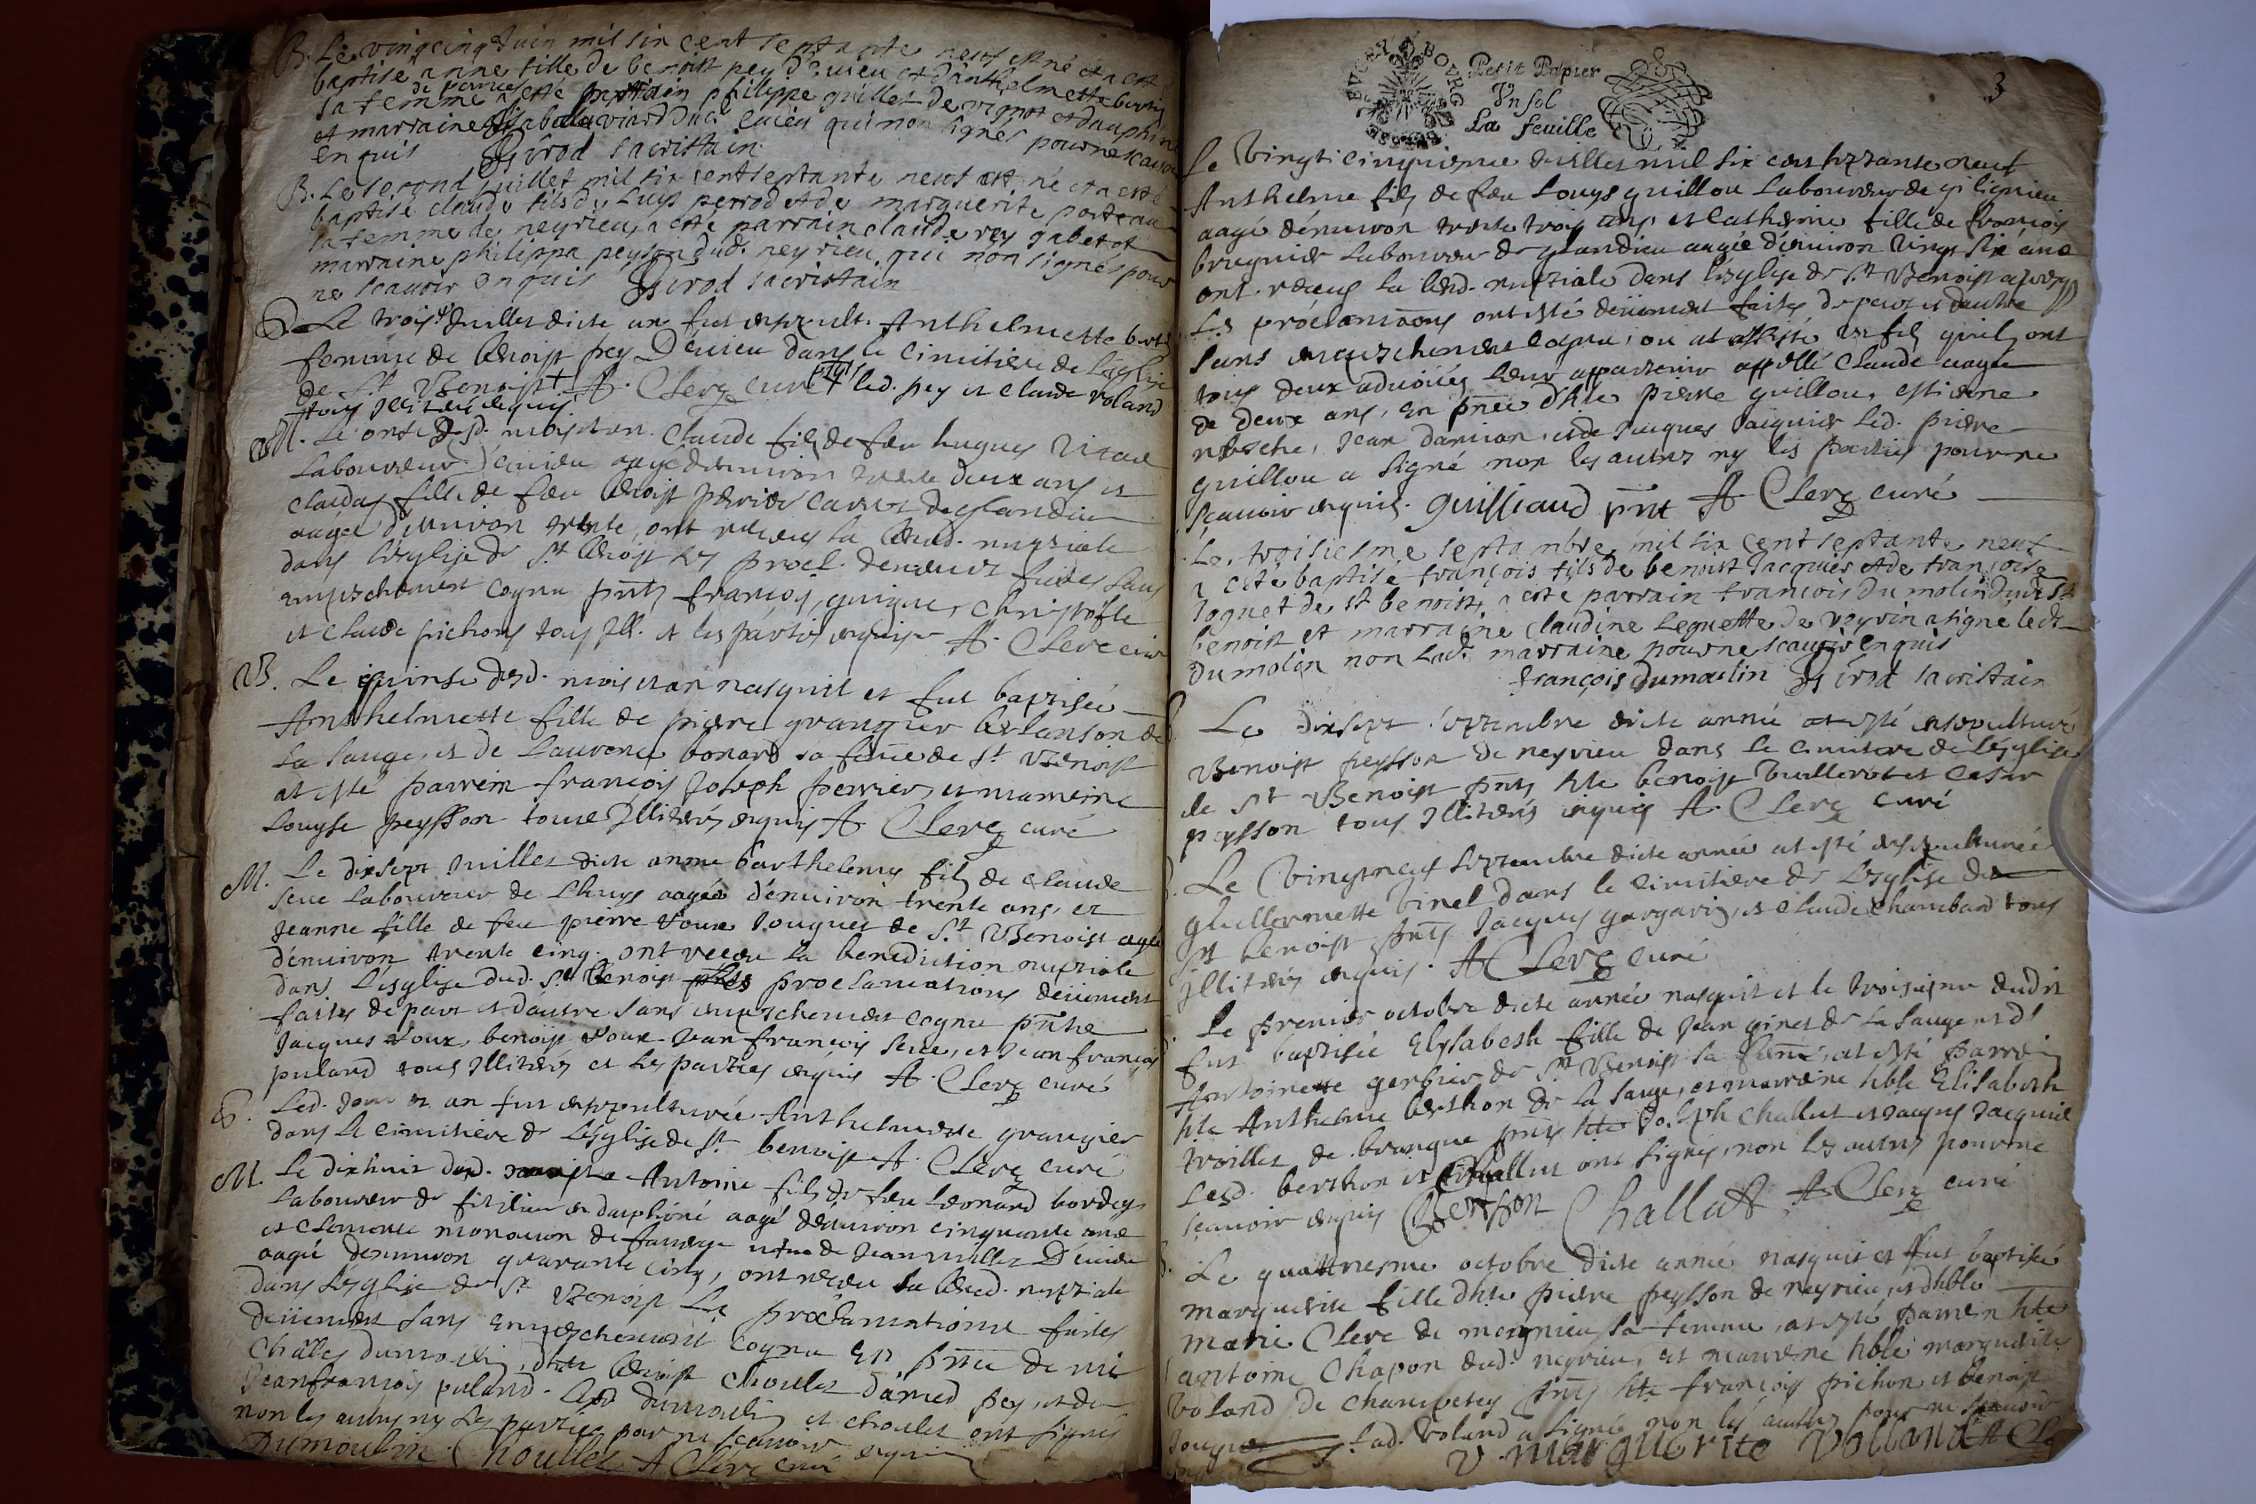 B. Le vingt cinq Juin mil six cent septante neuf est né et a esté
baptisé anne fille de benoist pey d'Euieu et d'anthelmette
sa femme a esté parrain philippe guillet de
et marraine
en quis Girod sacristain
B. Le second Juillet mil six cent septante neuf est né et a esté
baptisé claude fils de Luys perrod et de marguerite
sa femme de neyrieu, a esté parrain claude rey et
marraine philippa peyson dud. neyrieu qui non signés pour
ne scauoir enquis Girod sacristain
Le trois Juillet dicte an fut Anthelmette
femme de Benoist pey D'euieu dans le cimitiere de l'église
de St Benoist + A. Clerc curé + led. pey et Claude Roland
tous enquis
M. Le onze dud. mois et an Claude fils de feu hugues
Laboureur D'euieu aagé d'enuiron trente deux ans et
Claudas fille de feu Benoist de glandieu
aagée d'enuiron trente, ont receus la Bened. nuptiale
dans l'esglise de St Benoist les procl. faites sans
empeschement cognu pnts françois, guigue, christofle
et claude pichons tous Ill. et les parties enquis A. Clerc curé
B. Le quinse dud. mois et an nasquit et fut baptisée
Anthelmette fille de pierre grangier de
la sauge, et de Laurence bonard sa feme de St Benoist
at esté parrein françois Joseph perrier, et marreine
Louyse peysson tous Illiterés enquis A Clerc curé
M. Le dixsept Juillet dicte annee barthelemy fils de claude
Seue Laboureur de Lhuys aagée d'enuiron trente ans, et
Jeanne fille de feu pierre Vour de St Benoist aagée
d'enuiron trente cinq. ont receu la benediction nuptiale
dans l'esglise dud. St Benoist proclamations deüement
faites de part et d'autre sans empeschement cognu pnts
Jacques Vour, benoist Vour Jean françois Seue, et Jean françois
puland tous Illiterés et les parties enquis A. Clerc curé
Led. Jour et an fut ensepulturée Anthelmette grangier
dans le cimitiere de l'esglise de St benoist A. Clerc curé
M. Le dixhuit dud. Antoine fils de feu Leonard bordey
Laboureur de en dauphiné aagé d'enuiron cinquante ans
et Clemence de de Jean millet D'euieu
aagée d'enuiron quarante cinq, ont receu la Bened. nuptiale
dans l'esglise de St Benoist Les proclamations faites
deüement sans empeschement cognu En pnce de me
Charles dumoulin, Benoist Choulet pey, et de
Jean françois puland. Led dumoulin et choulet ont signés
non les autres ny les parties pour ne scauoir enquis
Dumoulin Choullet A Clerc curé
BVGEY BOVRG
Petit Papier
Vn sol
La feuille
3
Le Vingticinquieme Juillet mil six cens septante neuf
Anthelme fils de feu Louys guillou Laboureur de
aagé d'enuiron trente trois ans, et Catherine fille de françois
brugnier Laboureur de glandieu aagée d'enuiron Vingt six ans
ont receus la bened. nuptiale dans l'esglise de St Benoist apres
Les proclamaons ont esté deüement faites de part et d'autre
sans empeschement cognu, ou at assisté un fils qu'ils ont
tous deux aduoüés leur appartenir appellé Claude aagé
de deux ans, en pnce d'hte pierre guillou, estienne
Jean damian, et de Jacques Led. pierre
guillou a signé non les autres ny les parties pour ne
scauoir enquis. guilliaud pnt A. Clerc curé
Le troisiesme septembre mil six cent septante neuf
a esté baptisé françois fils de benoist Jacques et de françoise
Joguet de st benoist, a esté parrain françois Dumolin dud. St
benoist et marraine claudine Leguette de a signé led.
Dumolin non lad. marraine pour ne scauoir enquis
françois Dumoulin Girod sacristain
Le dixsept septembre dicte année at esté ensepulturé
Benoist peysson de neyrieu dans le cimitiere de l'esglise
de St Benoist pnts hte benoist Vuillerot et Cesar
peysson tous Illiterés enquis A. Clerc curé
Le Vingtneuf septembre dicte année at esté ensepulturée
guillermette binel dans le cimitiere de l'esglise de
St benoist, pnts Jacques gargarin, et claude chambard tous
Illiterés enquis. A Clerc curé
Le premier octobre dicte année nasquit et le troisiesme dudit
fut baptisée Elysabeth fille de Jean ginet de la Sauge, et d'
Antoinette gerbier de St Benoist sa feme, at esté parrein
hte Anthelme berthon de la Sauge, et marreine hble Elisabeth
troillet de brangue pnts Joseph Challut et Jacques
Lesd. berthon et Challut ont signés, non les autres pour ne
scauoir enquis Berthon Challut A Clerc curé
Le quattriesme octobre dicte année nasquit et fut baptisée
marguerite fille d'hte pierre peysson de neyrieu, et d'hble
marie Clerc de sa femme, at esté parrein hte
antoine Chapon dud. neyrieu, et marreine hble marguerite
Voland de pnts hte françois pichon et benoist
Lad. Voland a signé non les autres pour ne scauoir
marguerite Volland A Cle